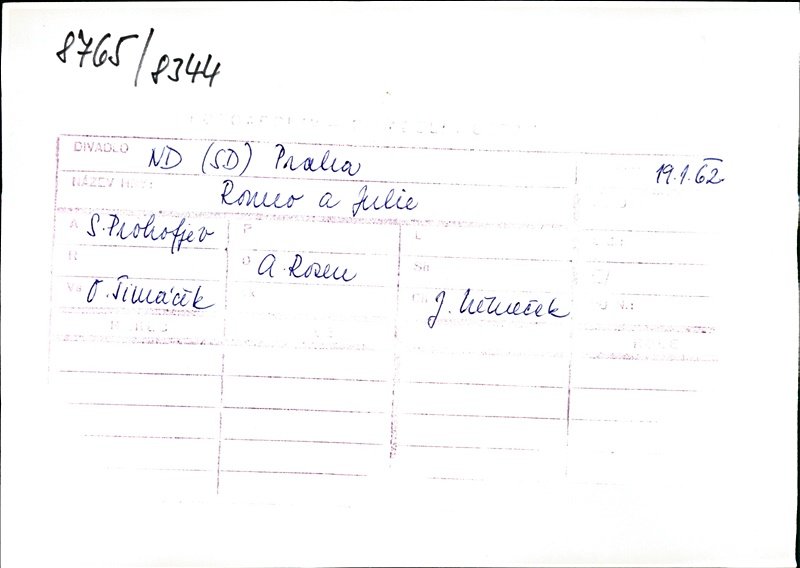 8765/8344
DIVADLO ND (SD) Praha 19.1.62
NÁZEV Romeo a Julie
A S. Prokofjev P
R D A. Rosen Sn
Vý O. Šimáček J. Němeček